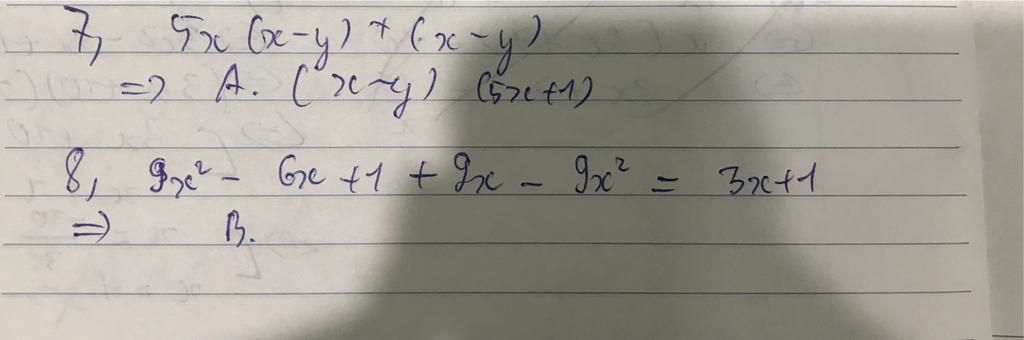 7, 5x (x-y) + (x-y)
=> A. (x-y) (5x+1)
8, 9x² - 6x + 1 + 9x - 9x² = 3x+1
=> B.